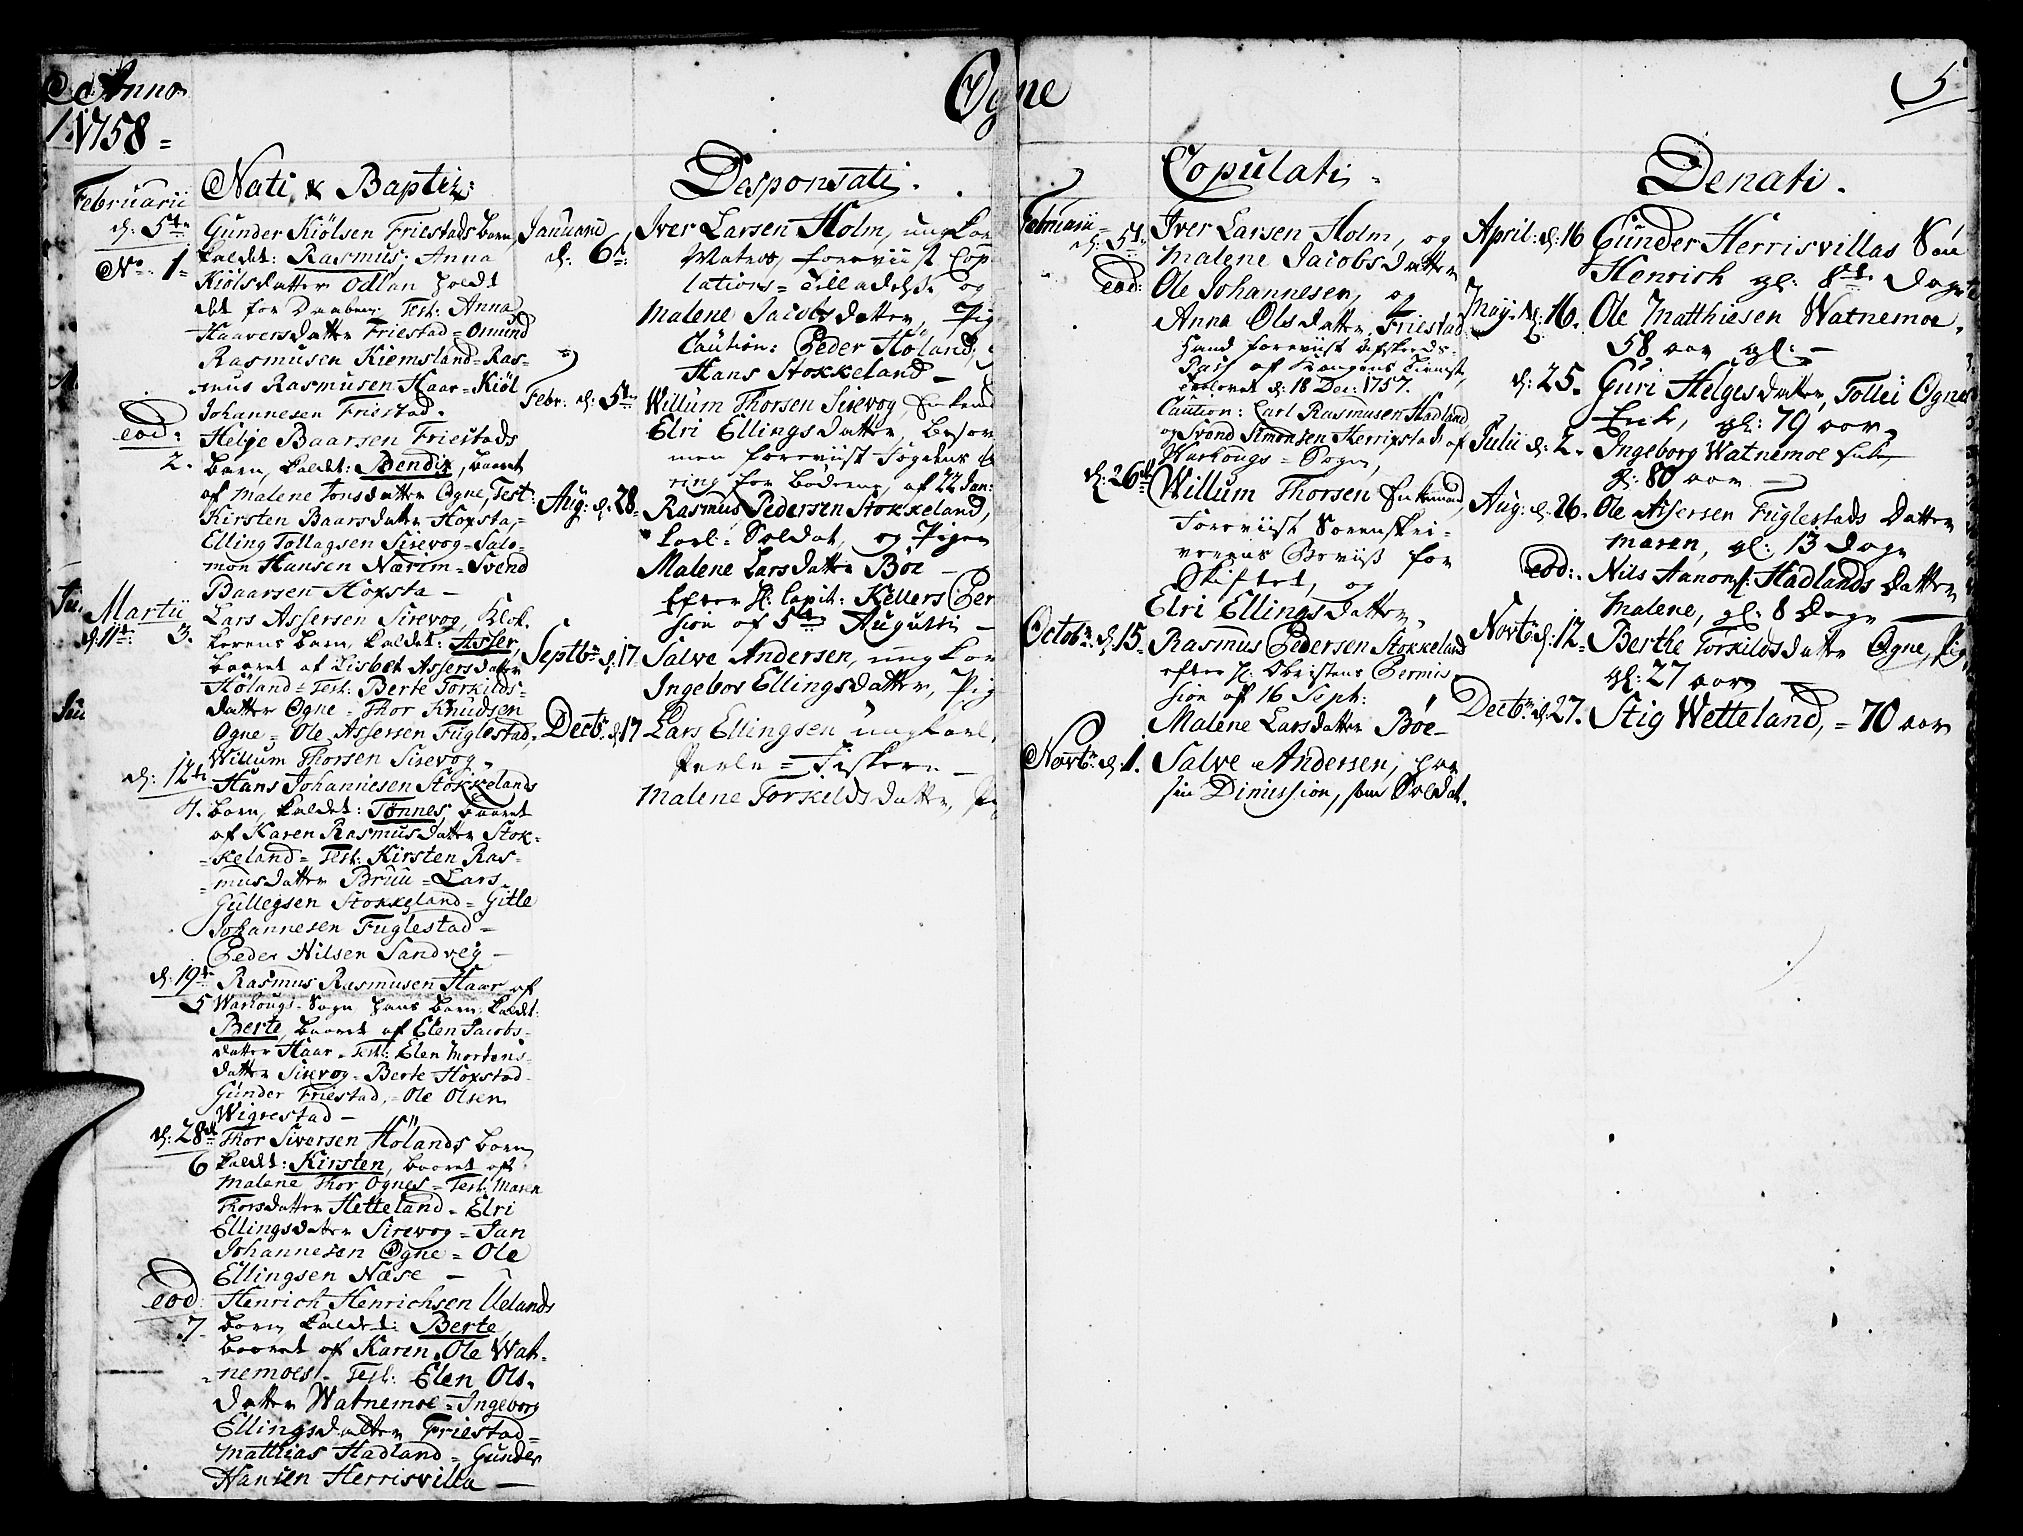 Anno
1758 =
Øgne
5
Nati & Baptiz:
Februarii
d. 5te
No. 1.
Gunder Kiölsen Friestads barn,
kaldt: Rasmus; Anna
Kiölsdatter Odlan holdt
det for Daaben; Test: Anna
Haaversdatter Friestad = Omund
Rasmusen Kiemsland = Ras-
mus Rasmusen Haar = Kiöl
Johannesen Friestad.
eod:
2.
Helje Baarsen Friestads
barn, kaldt: Bendix, baaret
af Malene Jonsdatter Ogne, Test:
Kirsten Baarsdatter Hopsta, =
Elling Tollagsen Sirevog = Salo-
mon Hansen Nærim = Svend
Baarsen Hopsta —
Martii
d. 11te 3.
Lars Assersen Sirevog, Klok-
kerens barn, kaldet: Asser,
baaret af Lisbet Assersdatter
Höland = Test: Berte Torkilds-
datter Ogne = Thor Knudsen
Ogne = Ole Assersen Fuglestad,
Willum Thorsen Sirevog.
d: 12te
4.
Hans Johannesen Stokkelands
barn, kaldet: Tønnes, baaret
af Karen Rasmusdatter Stok-
keland = Test: Kirsten Ras-
musdatter Bruu = Lars
Gullegsen Stokkeland = Gitle
Johannesen Fuglestad =
Peder Nilsen Sandveg —
d: 19te
5
Rasmus Rasmusen Haar af
Warhougs-Sogn hans barn, kaldt:
Berte, baaret af Elen Jacobs-
datter Haar = Test: Elen Mortens-
datter Sirevog = Berte Hopstad =
Gunder Friestad, = Ole Olsen
Wigrestad —
d: 28de
6
Thor Siversen Hölands barn
kaldt: Kirsten, baaret af
Malene Thor Ognes = Test: Maren
Thorsdatter Hetteland = Elri
Ellingsdatter Sirevog = Jan
Johannesen Øgne = Ole
Ellingsen Næse —
eod:
7.
Henrich Henrichsen Uelands
barn kaldet: Berte,
baaret af Karen Ole Wat-
nemoes. Test: Elen Ols-
datter Watnemoe = Ingeborg
Ellingsdatter Friestad =
Matthias Hadland = Gunder
Hansen Herrisvilla —
Desponsati.
Januarii
d. 6te
Iver Larsen Holm, ungkar
Matros, foreviist Cop
lations = Tilladelse og
Malene Jacobsdatter, Pig
Caution: Peder Höland,
Hans Stokkeland —
Febr. d. 5te
Willum Thorsen Sirevog, Enkemd
Elri Ellingsdatter, besov
men foreviist Fogdens
ring for Böderne, af 22 Jan:
Aug: d. 28
Rasmus Pedersen Stokkeland,
karl = Soldat, og Pigen
Malene Larsdatter Böe —
Efter Hr: Capit: Kellers Per
sion af 5te Augusti —
Septbr d. 17
Salve Andersen, ungkar
Ingebor Ellingsdatter, Pig
Decbr. d. 17
Lars Ellingsen ungkarl,
Perle = Fiskere —
Malene Torkeldsdatter, Pig
Copulati =
Februarii
d. 5te
Iver Larsen Holm, og
Malene Jacobsdatter
eod:
Ole Johannesen, og
Anna Olsdatter Friestad
hand foreviist Afskeds-
Pass af Kongens Tieneste,
Troloved d: 18 Dec: 1757.
Caution: Carl Rasmusen Hadland,
og Svend Simonsen Herripstad af
Warhougs = Sogn,
d. 26te
Willum Thorsen Enkemand
Foreviist Sorenskri-
verens Beviis for
Skiftet, og
Elri Ellingsdatter,
Octobr. d. 15.
Rasmus Pedersen Stokkeland
efter Hr: Obristens Permis-
sion af 16 Sept:
Malene Larsdatter Böe —
Novbr. d. 1.
Salve Andersen, har
sin Dimission, som Soldat.
Denati.
April: d. 16
Gunder Herrisvillas Sön
Henrich gl: 8te Dage
Maij. d: 16.
Ole Matthiesen Watnemoe.
58 aar gl: —
d. 25.
Guri Helgesdatter, Tollei Ognes
Enke, gl: 79 aar.
Julii d: 2.
Ingeborg Watnemoe
gl: 80 aar —
Aug: d. 26.
Ole Assersen Fuglestads Datter
Maren, gl: 13 Dage
eod:
Nils Aanons: Hadlands Datter
Malene, gl: 8 Dage —
Novbr. d. 12
Berthe Torkildsdatter Ogne, Pig,
gl: 27 aar —
Decbr. d. 27.
Stig Wetteland, = 70 aar